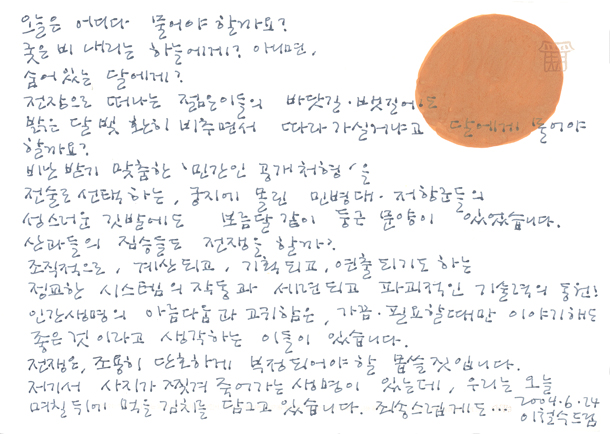 오늘은 어디다 물어야 할까요?
궂은 비 내리는 하늘에게? 아니면,
숨어있는 달에게?
전장으로 떠나는 젊은이들의 바닷길·뱃길에도
밝은 달빛 환히 비추면서 따라가실거냐고 달에게 물어야
할까요?
비난받기 맞춤한 '민간인 공개처형'을
전술로 선택하는, 궁지에 몰린 민병대·저항군들의
성스러운 깃발에도 보름달같이 둥근 문양이 있었습니다.
산과들의 짐승들도 전쟁을 할까?
조직적으로, 계산되고, 기획되고, 연출되기도 하는
정교한 시스템의 작동과 세련되고 파괴적인 기술력의 동원!
인간생명의 아름다움과 고귀함은, 가끔·필요할때만 이야기해도
좋은것이라고 생각하는 이들이 있습니다.
전쟁은, 조용히 단호하게 부정되어야할 몹쓸것입니다.
저기서 사지가 찢겨 죽어가는 생명이 있는데, 우리는 오늘
며칠뒤에 먹을 김치를 담그고 있습니다. 죄송스럽게도…
2004.6.24
이철수드림